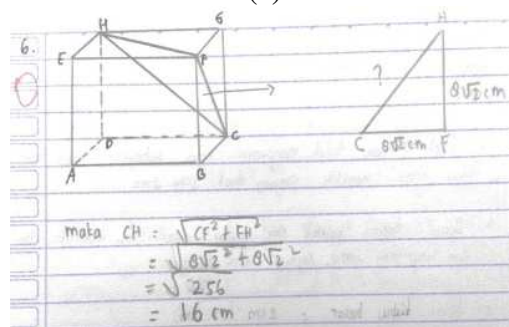 6.
H
G
E
F
D
C
A
B
H
?
8√2 cm
C 8√2 cm F
maka CH = √CF² + FH²
= √8√2² + 8√2²
= √256
= 16 cm